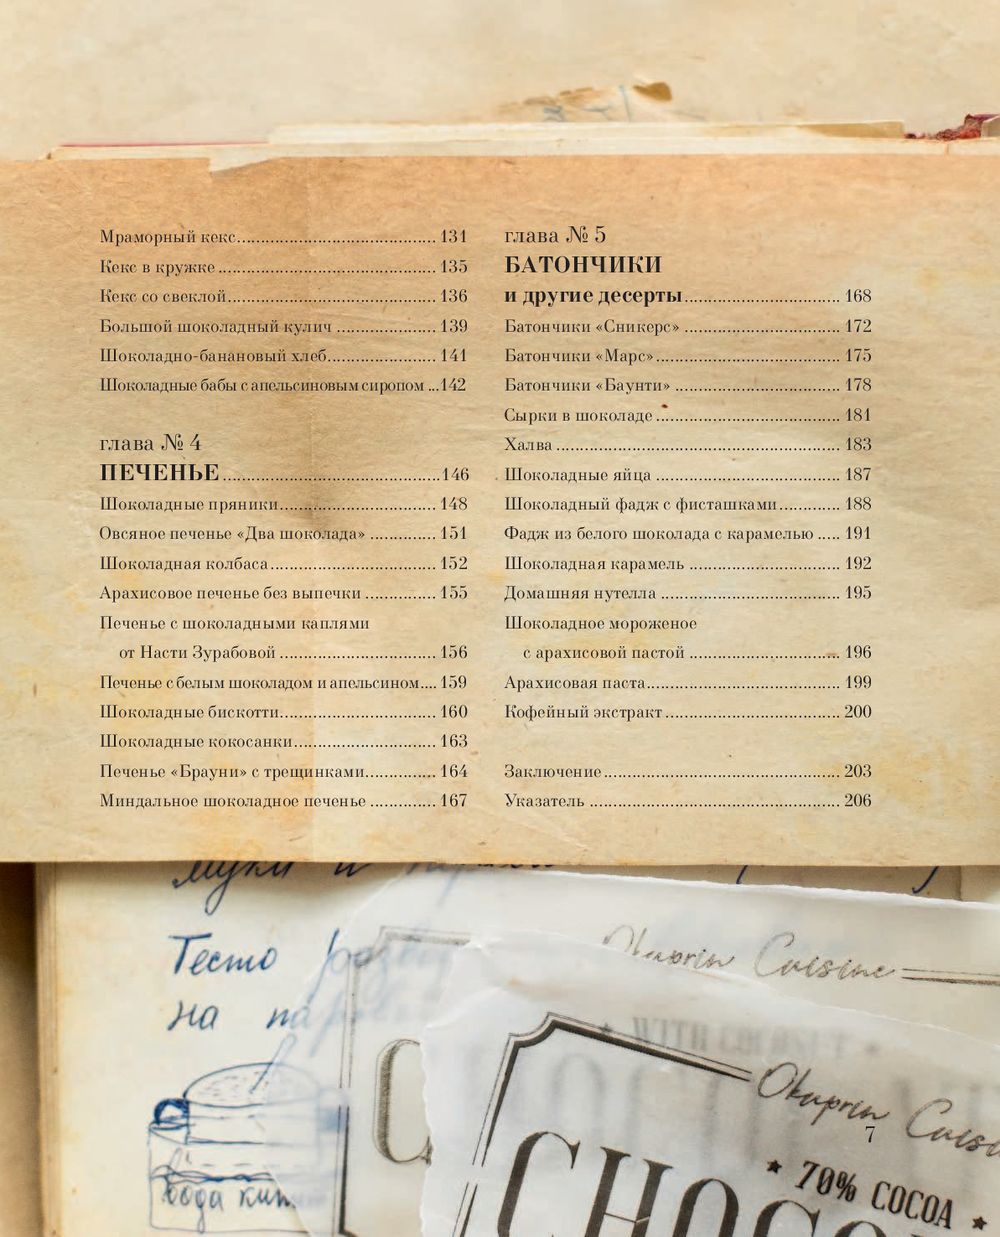 Мраморный кекс........................................ 131
Кекс в кружке ............................................ 135
Кекс со свеклой.......................................... 136
Большой шоколадный кулич .................... 139
Шоколадно-банановый хлеб...................... 141
Шоколадные бабы с апельсиновым сиропом ...142
глава № 4
ПЕЧЕНЬЕ............................................146
Шоколадные пряники................................ 148
Овсяное печенье «Два шоколада» ............. 151
Шоколадная колбаса.................................. 152
Арахисовое печенье без выпечки .............. 155
Печенье с шоколадными каплями
от Насти Зурабовой ................................ 156
Печенье с белым шоколадом и апельсином.... 159
Шоколадные бискотти................................ 160
Шоколадные кокосанки............................. 163
Печенье «Брауни» с трещинками.............. 164
Миндальное шоколадное печенье ............. 167
глава № 5
БАТОНЧИКИ
и другие десерты............................... 168
Батончики «Сникерс» ............................... 172
Батончики «Марс»..................................... 175
Батончики «Баунти» ................................. 178
Сырки в шоколаде ..................................... 181
Халва .......................................................... 183
Шоколадные яйца ..................................... 187
Шоколадный фадж с фисташками............ 188
Фадж из белого шоколада с карамелью ..... 191
Шоколадная карамель .............................. 192
Домашняя нутелла .................................... 195
Шоколадное мороженое
с арахисовой пастой .............................. 196
Арахисовая паста....................................... 199
Кофейный экстракт ................................... 200
Заключение ............................................... 203
Указатель .................................................. 206
муки и
Тесто
на
вода кип.
Cuisine
WITH COCONUT
Okuprin
7
70% COCOA
CHOCO